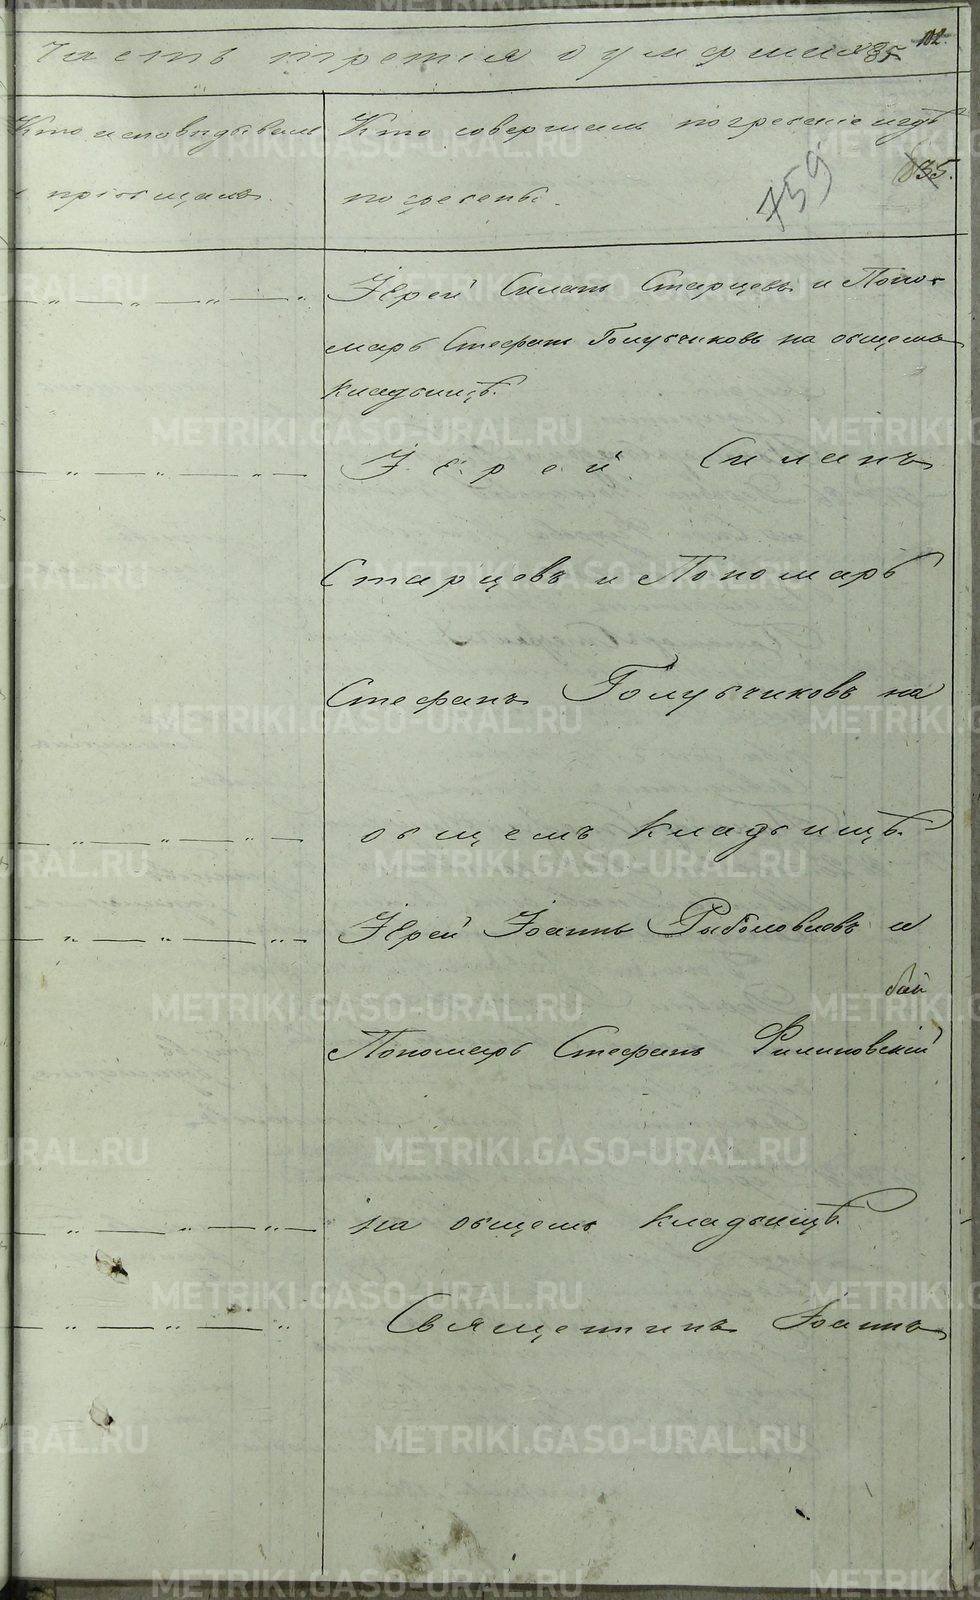 102.
Часть третія о умершихъ 35
Кто исповѣдывалъ
Кто совершалъ погребеніе и гдѣ
и пріобщалъ.
погребены.
759
35.
Іерей Силанъ Старцевъ и Поно-
марь Стефанъ Голубчиковъ на общемъ
кладбищѣ.
Іерей Силанъ
Старцевъ и Пономарь
Стефанъ Голубчиковъ на
общемъ кладбищѣ.
Іерей Іоаннъ Рыболовлевъ и
Пономарь Стефанъ Филиповскій
на общемъ кладбищѣ.
Священникъ Іоаннъ
METRIKI.GASO-URAL.RU